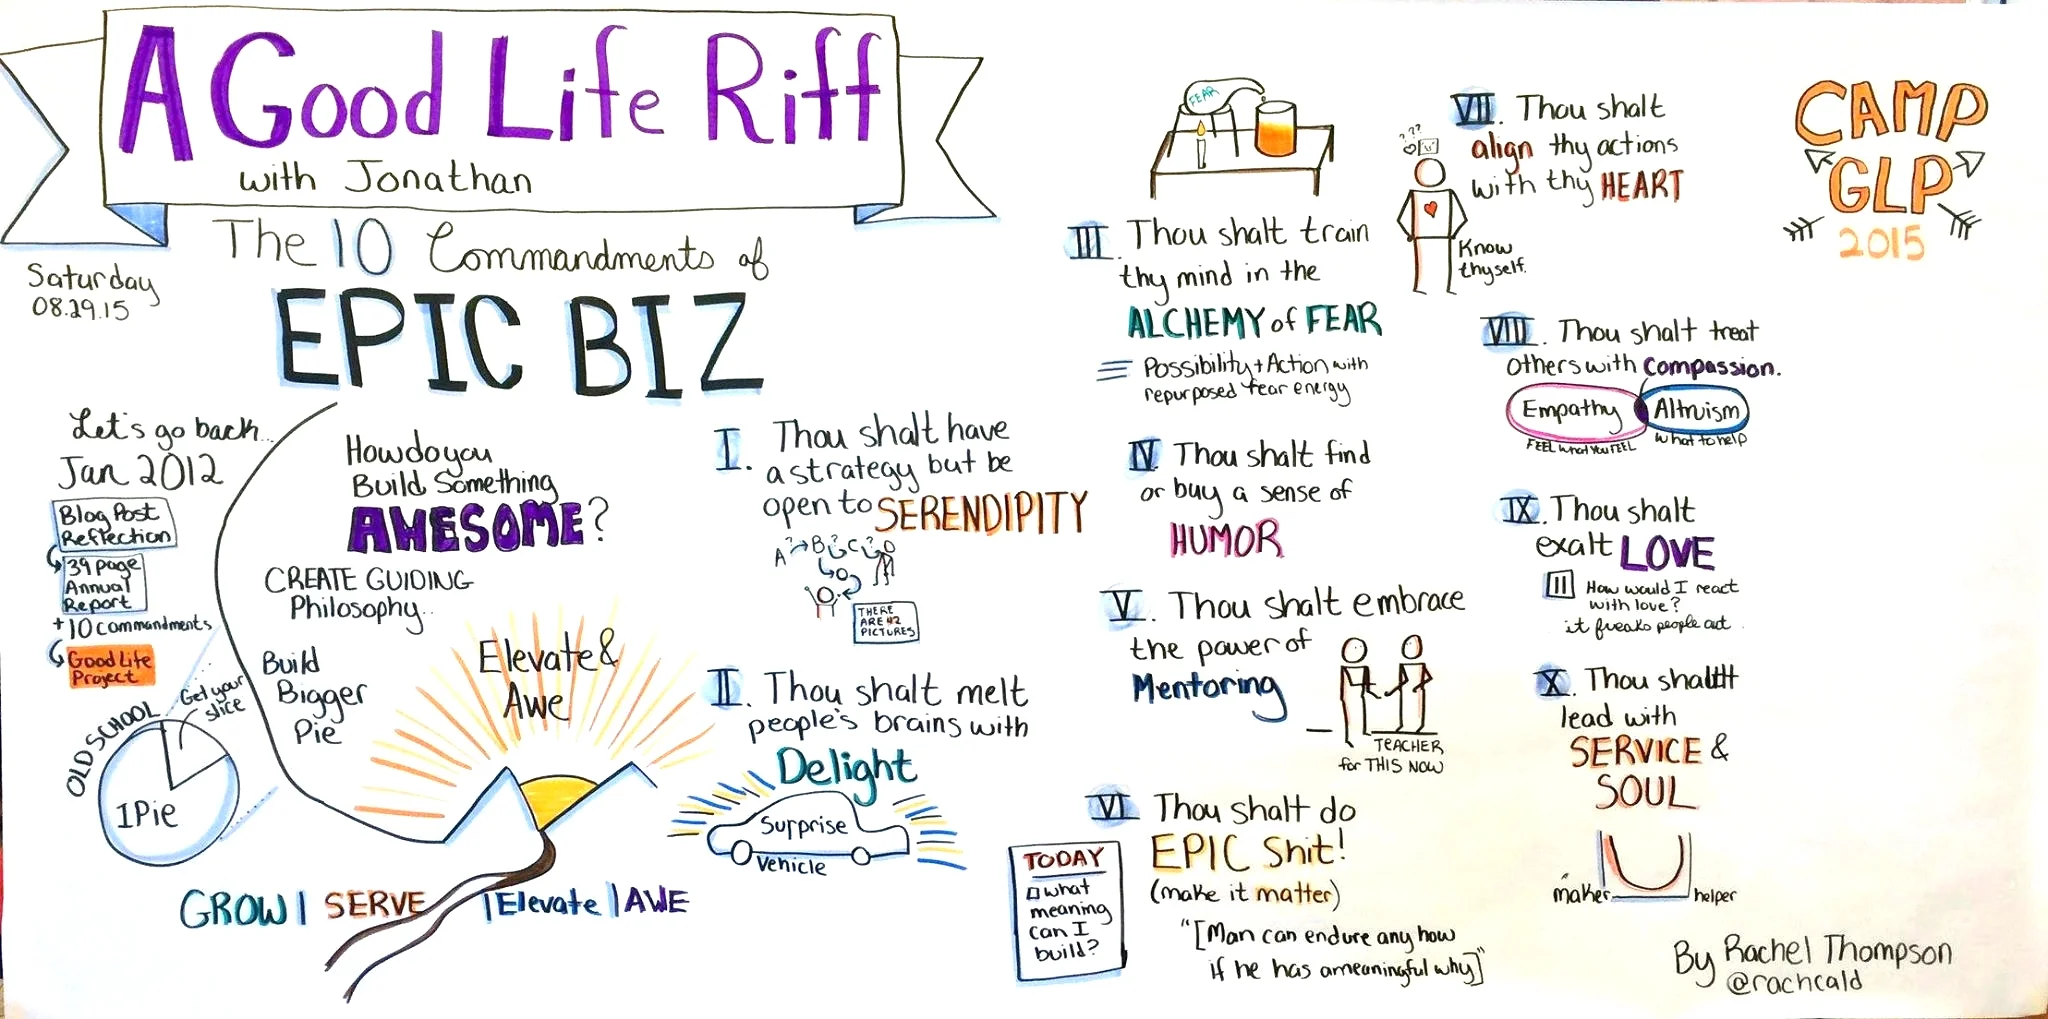 A Good Life Riff
with Jonathan
Saturday
08.29.15
The 10 Commandments of
EPIC BIZ
Let's go back...
Jan 2012
Blog Post
Reflection
39 page
Annual
Report
+10 commandments
Good Life
Project
OLD SCHOOL
Get your
slice
1 Pie
How do you
Build Something
AWESOME?
CREATE GUIDING
Philosophy..
Build
Bigger
Pie
Elevate &
Awe
GROW | SERVE | Elevate | AWE
I. Thou shalt have
a strategy but be
open to SERENDIPITY
A B C
THERE
ARE 42
PICTURES
II. Thou shalt melt
people's brains with
Delight
Surprise
Vehicle
FEAR
III. Thou shalt train
thy mind in the
ALCHEMY of FEAR
Possibility + Action with
repurposed fear energy
IV. Thou shalt find
or buy a sense of
HUMOR
V. Thou shalt embrace
the power of
Mentoring
TEACHER
for THIS NOW
VI. Thou shalt do
EPIC Shit!
(make it matter)
"[Man can endure any how
if he has a meaningful why]"
TODAY
what
meaning
can I
build?
VII. Thou shalt
align thy actions
with thy HEART
???
Know
thyself.
VIII. Thou shalt treat
others with compassion.
Empathy Altruism
FEEL what you FEEL
what to help
IX. Thou shalt
exalt LOVE
How would I react
with love?
it freaks people out
X. Thou shalt
lead with
SERVICE &
SOUL
maker helper
CAMP
GLP
2015
By Rachel Thompson
@rachcald